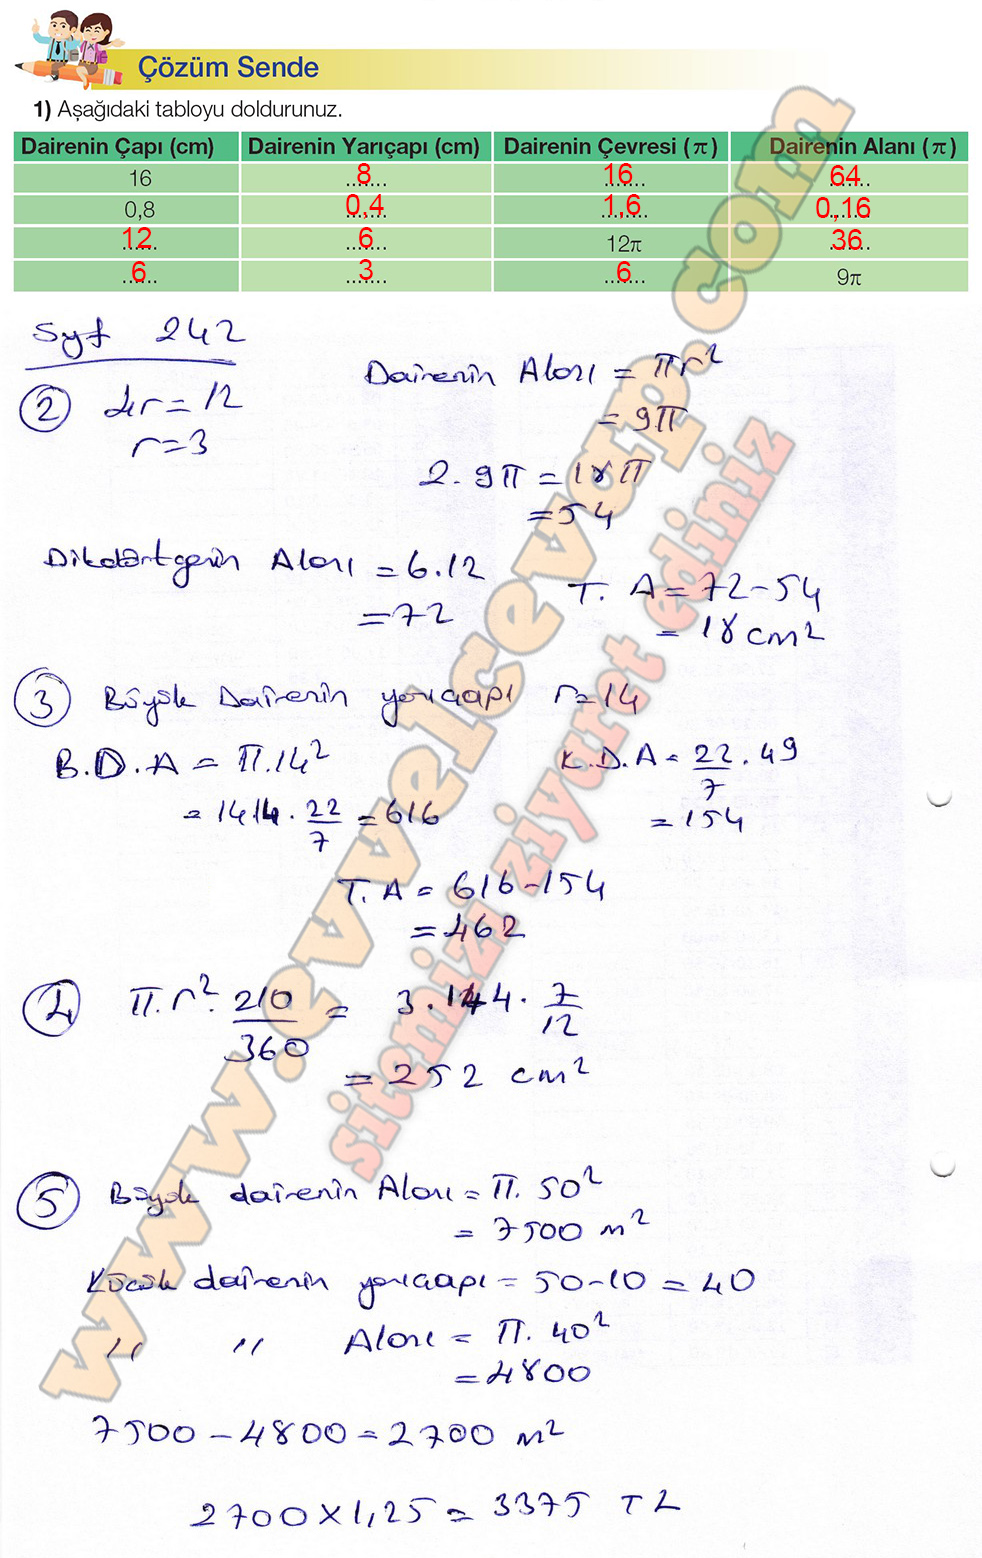 Çözüm Sende
1) Aşağıdaki tabloyu doldurunuz.
Dairenin Çapı (cm) Dairenin Yarıçapı (cm) Dairenin Çevresi (π) Dairenin Alanı (π)
16 8 16 64
0,8 0,4 1,6 0,16
12 6 12π 36
6 3 6 9π
Syf 242
2 4r = 12
r = 3
Dairenin Alanı = πr²
= 9π
2. 9π = 18π
= 54
Dikdörtgenin Alanı = 6.12
= 72
T. A = 72 - 54
= 18 cm²
3 Büyük Dairenin yarıçapı r = 14
B.D.A = π.14²
= 14.14.22/7 = 616
K.D.A = 22/7 . 49
= 154
T. A = 616 - 154
= 462
4 π.r².210/360 = 3.144.7/12
= 252 cm²
5 Büyük dairenin Alanı = π. 50²
= 7500 m²
Küçük dairenin yarıçapı = 50 - 10 = 40
" " Alanı = π. 40²
= 4800
7500 - 4800 = 2700 m²
2700 x 1,25 = 3375 TL
www.evvelcevap.com
sitemizi ziyaret ediniz